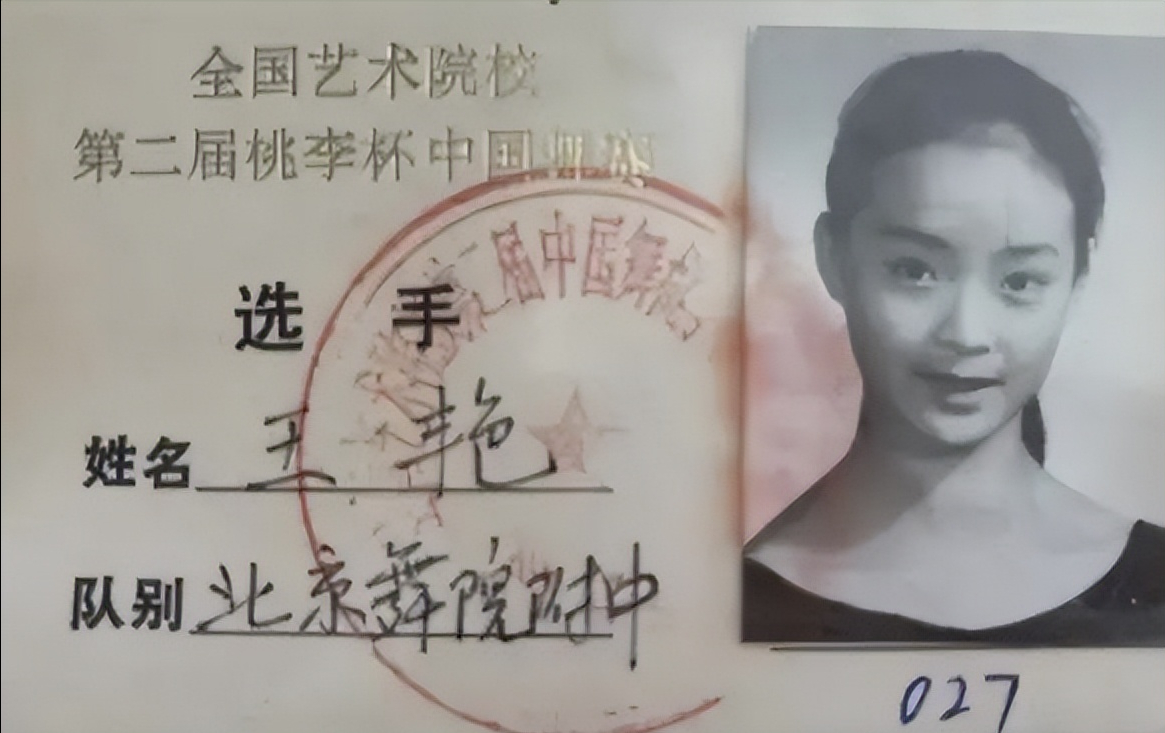 全国艺术院校
第二届桃李杯中国舞
选 手
姓名 王艳
队别 北京舞院附中
届中国舞
027